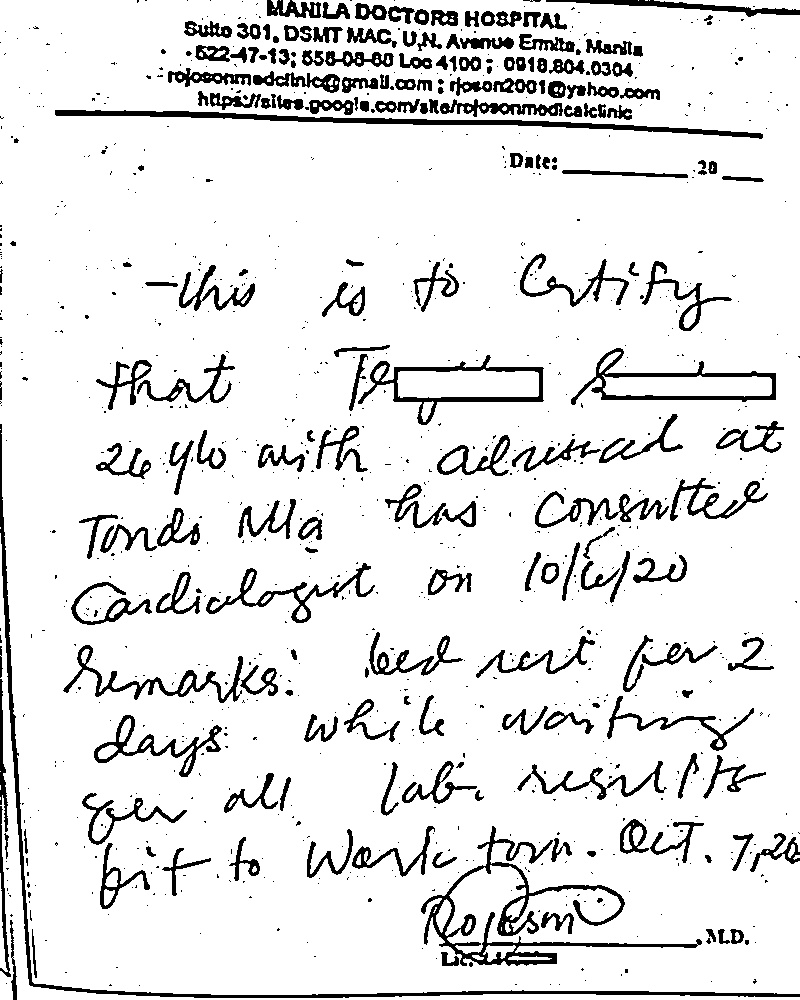 MANILA DOCTORS HOSPITAL
Suite 301, DSMT MAC, U.N. Avenue Ermita, Manila
522-47-13; 558-08-88 Loc 4100 ; 0918.804.0304
rojosonmedclinic@gmail.com ; rjoson2001@yahoo.com
https://sites.google.com/site/rojosonmedicalclinic
Date: ________ 20 ___
This is to Certify
that
26 y/o with adressed at
Tondo Mla has consulted
Cardiologist on 10/6/20
Remarks: bed rest for 2
days while waiting
for all lab. results
fit to work tom. Oct. 7, 20
Rojoson
, M.D.
Lic.